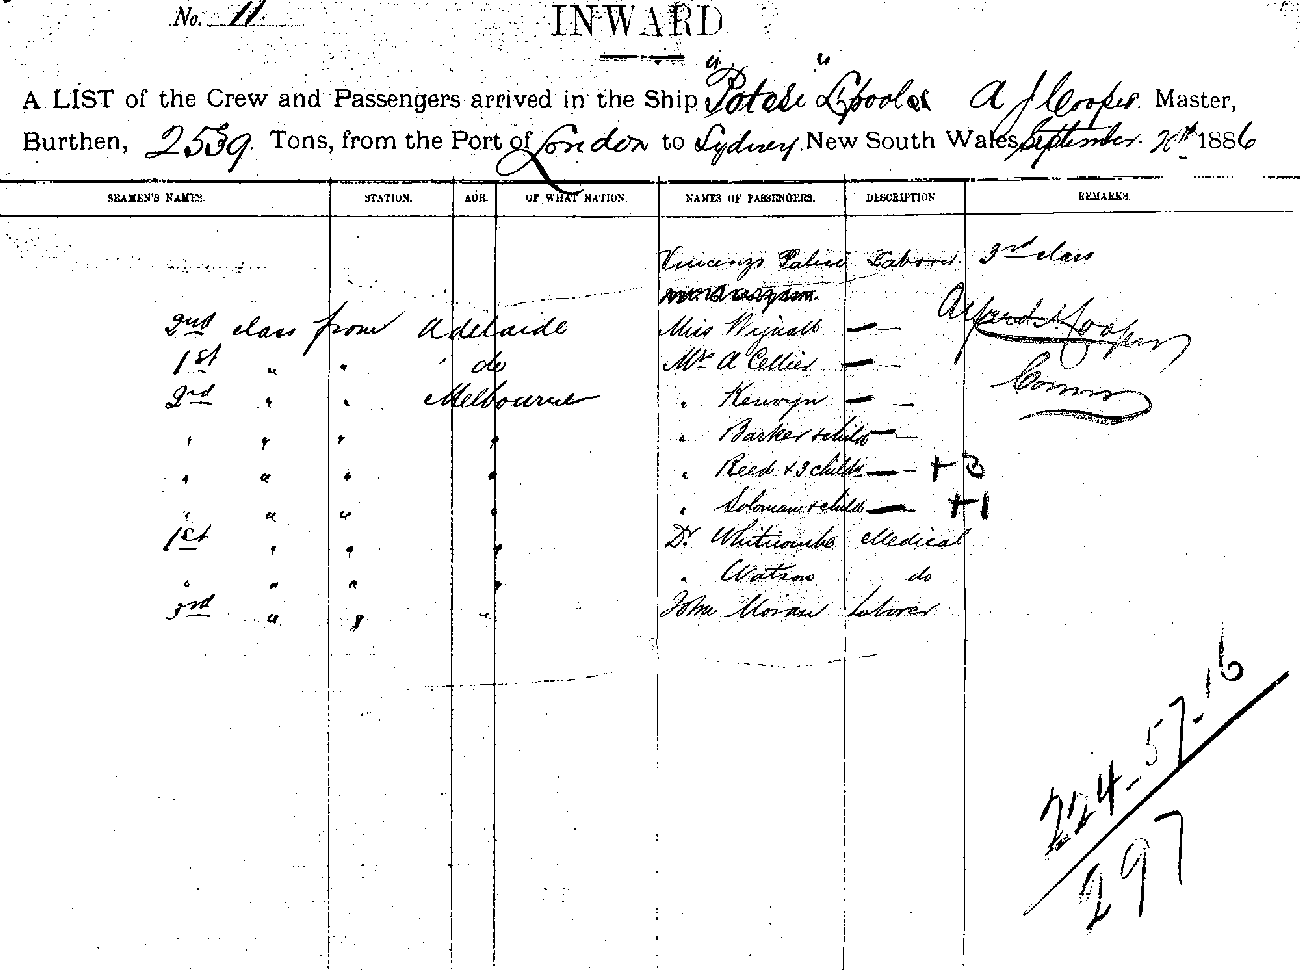 No. 11.
INWARD
A LIST of the Crew and Passengers arrived in the Ship "Potosi" L'pool A J Cooper Master,
Burthen, 2539 Tons, from the Port of London to Sydney, New South Wales, September 1886
SEAMEN'S NAMES. STATION. AGE. OF WHAT NATION. NAMES OF PASSENGERS. DESCRIPTION REMARKS.
Vincenzo Labour 3rd class
2nd class from Adelaide Miss —
1st " " do Mr A Cellier —
2nd " " Melbourne " Kerwyn —
" " " " " Barker & child —
" " " " " Reed & 3 childn — +3
" " " " " Soloman & child — +1
Alfred J Cooper
Comm
1st " " " Dr Whitcombe Medical
" " " " " Watson do
3rd " " " John Moran Labourer
224-57-16
297